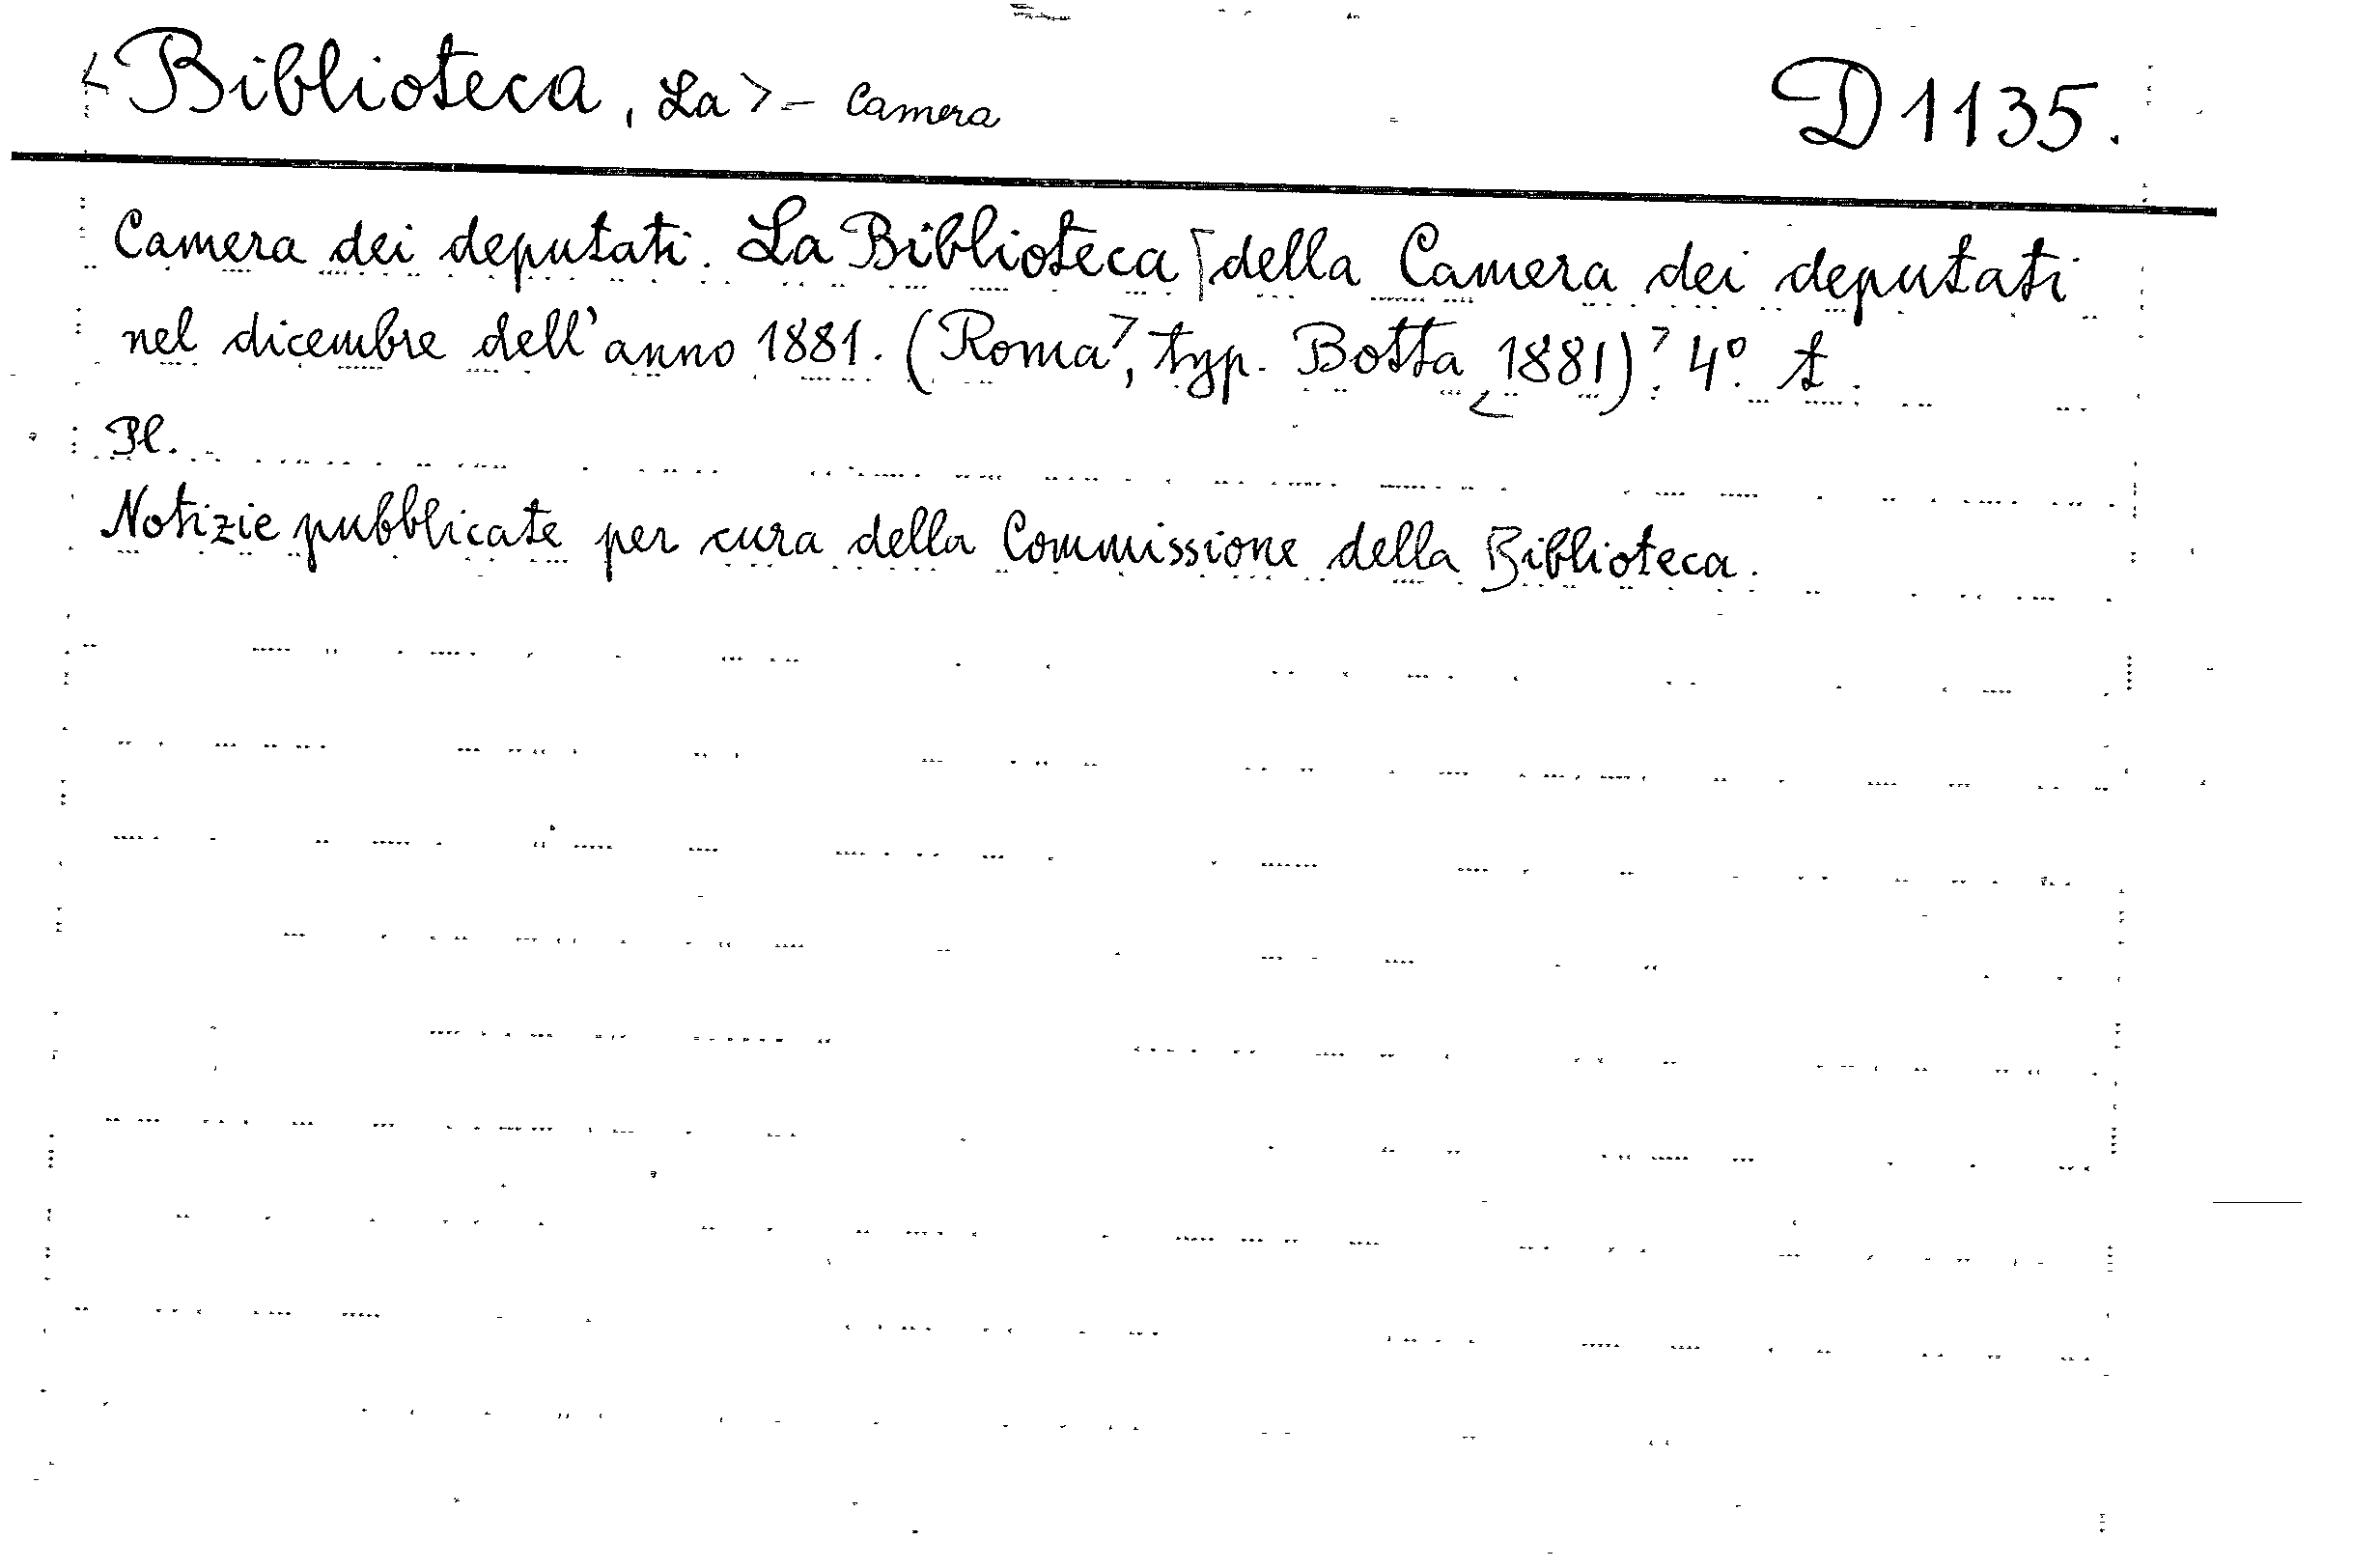 <Biblioteca, La> - Camera D 1135.
Camera dei deputati. La Biblioteca della Camera dei deputati
nel dicembre dell'anno 1881. (Roma, typ. Botta 1881). 4°. t.
Pl.
Notizie pubblicate per cura della Commissione della Biblioteca.